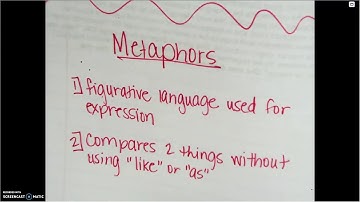 Metaphors
1] figurative language used for
expression
2] Compares 2 things without
using "like" or "as"
RECORDED WITH
SCREENCAST MATIC